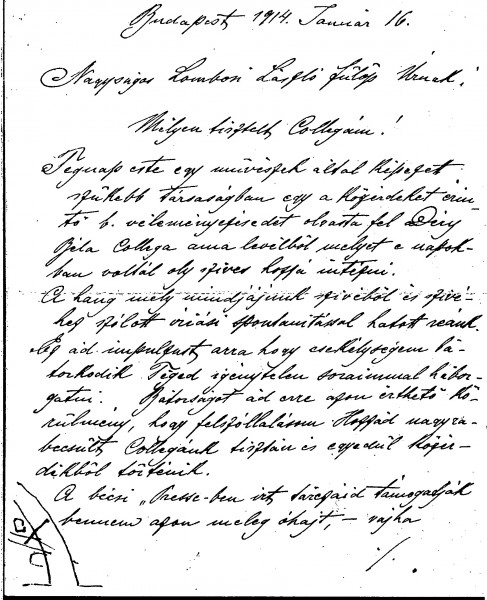 Budapest 1914. Január 16.
Nagyságos Lombosi László Fülöp Úrnak!
Mélyen tisztelt Collegám!
Tegnap este egy művészek által képezet
szűkebb társaságban egy a közérdeket érin-
tő b. véleményezésedet olvasta fel Déry
Béla Collega ama levélből melyet e napok-
ban voltál oly szíves hozzá intézni.
A hang mely mindjájunk szívéből és szívé-
hez szólott óriási spontanitással hatott reánk.
Ez ád impulzust arra hogy csekélységem bá-
torkodik Téged igénytelen soraimmal hábor-
gatni. Bátorságot ád erre azon érthető kö-
rülmény, hogy felszóllalásom Hozzád nagyra-
becsült Collegánk tisztán és egyedül közér-
dekből történik.
A bécsi „Presse-ben írt tárczáid támogatják
bennem azon meleg óhajt, – vajha
./.